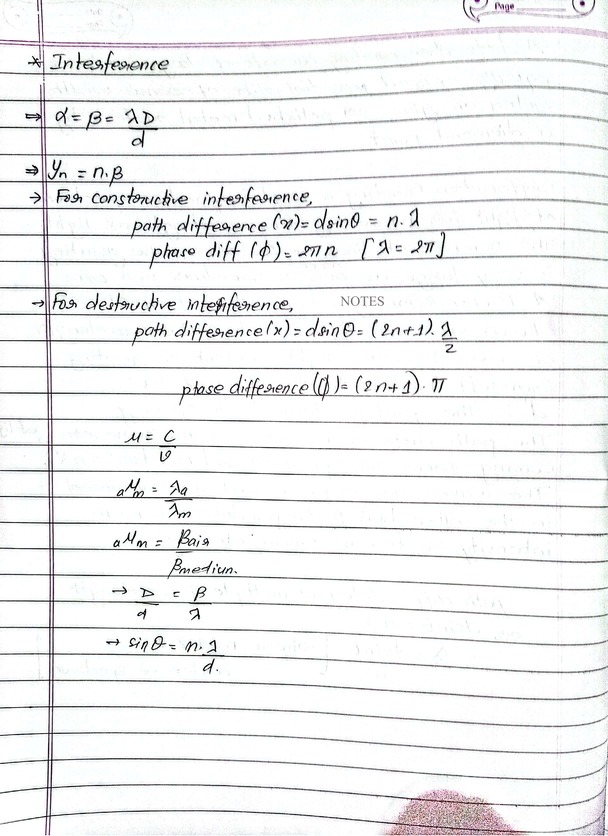 Page
* Interference
⇒ α = β = λD/d
⇒ yn = n.β
→ For constructive interference,
path difference (x) = dsinθ = n.λ
phase diff (ϕ) = 2πn [λ = 2π]
→ For destructive interference,
NOTES
path difference (x) = dsinθ = (2n+1).λ/2
phase difference (ϕ) = (2n+1).π
μ = C/v
aμm = λa/λm
aμm = βair/βmedium.
→ D/d = β/λ
→ sinθ = n.λ/d.